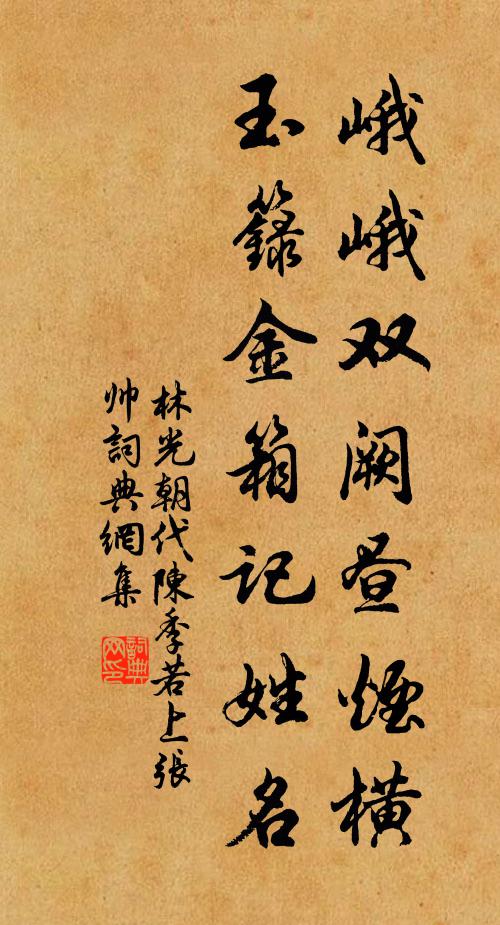 峨峨双阙昼烟横
玉籙金箱记姓名
林光朝代陳季若上張
帅詞典網集
詞典網印